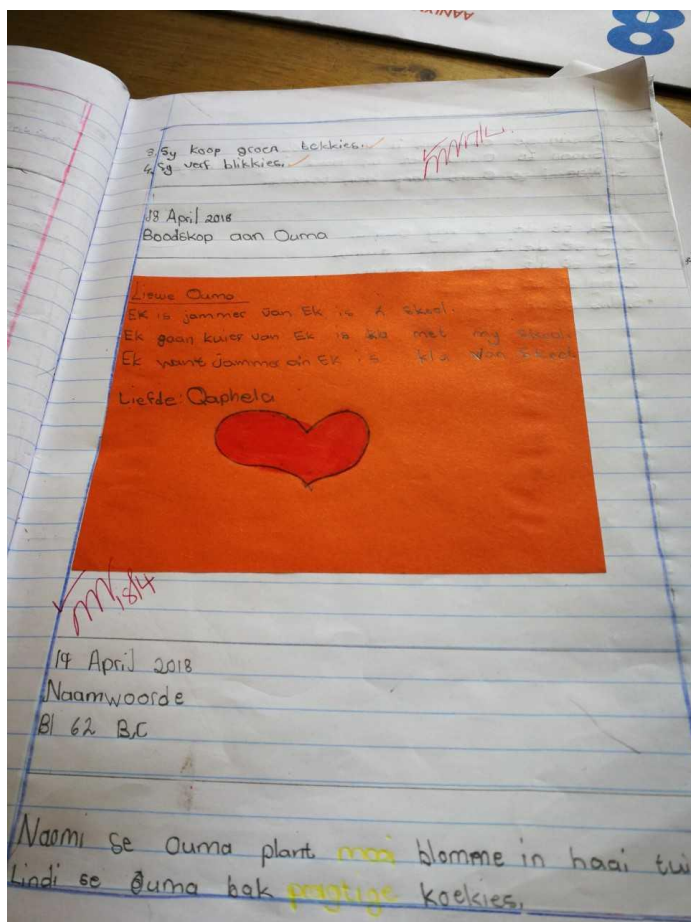 8
3. Sy koop groen bekkies.
4. Sy verf blikkies.
18 April 2018
Boodskop aan Ouma
Liewe Ouma
Ek is jammer van Ek is skeel.
Ek gaan kuier van Ek is met my skeel.
Ek want jammer Ek is klx van skeel
Liefde: Qaphela
18/4
19 April 2018
Naamwoorde
Bl 62 B,C
Naomi se Ouma plant mooi blomme in haai tui
Lindi se Ouma bak pragtige koekies.